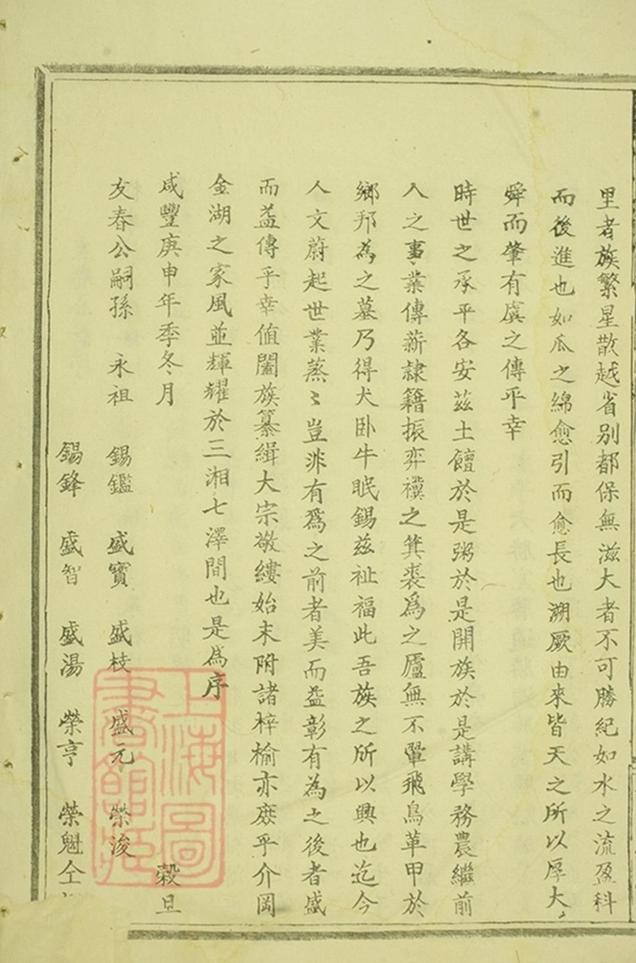 里者族繁星散越省别都保無滋大者不可勝紀如水之流盈科
而後進也如瓜之綿愈引而愈長也溯厥由來皆天之所以厚大
舜而肇有虞之傳乎幸
時世之承平各安茲土饘於是粥於是開族於是講學務農繼前
人之事業傳薪隸籍振弈禩之箕裘為之廬無不翬飛鳥革甲於
鄉邦為之墓乃得犬卧牛眠錫茲祉福此吾族之所以興也迄今
人文蔚起世業蒸〻豈非有為之前者美而益彰有為之後者盛
而益傳乎幸值闔族纂緝大宗敬縷始末附諸梓榆亦庶乎介岡
金湖之家風並輝耀於三湘七澤間也是為序
咸豐庚申年季冬月 穀旦
友春公嗣孫 永祖 錫鑑 盛寶 盛枝 盛元 榮浚
錫鋒 盛智 盛湯 榮亨 榮魁 仝
上海圖書館藏